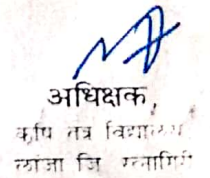 अधिक्षक,
कृषि तंत्र विद्यालय
लांजा जि रत्नागिरी